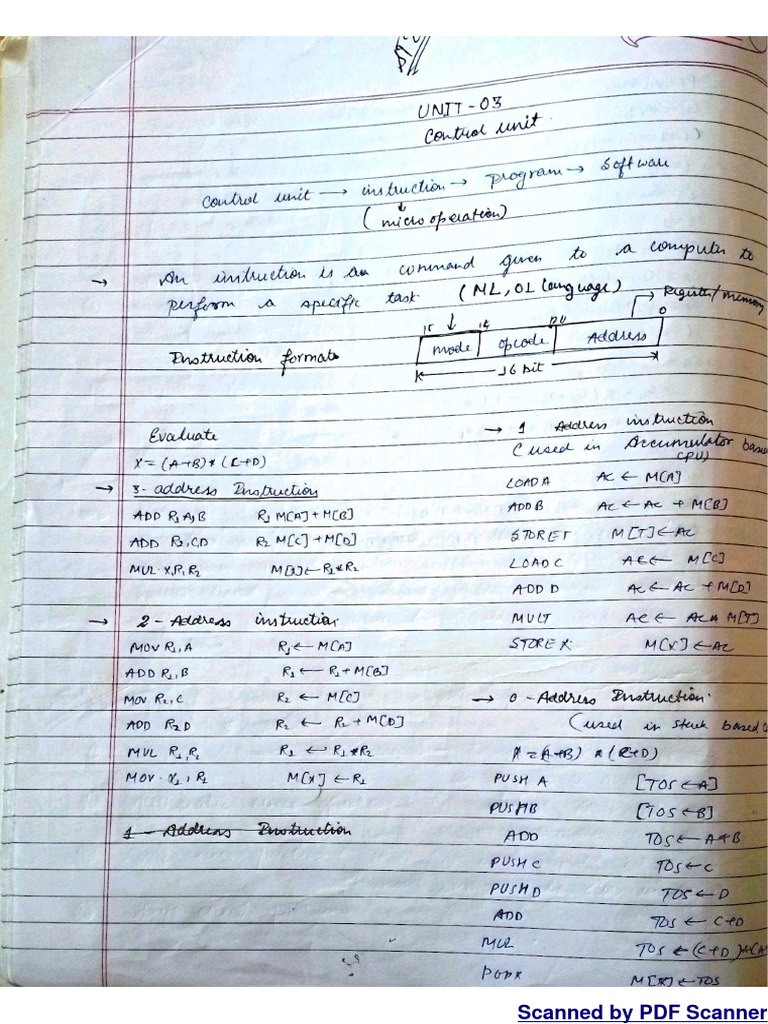 UNIT-03
Control unit.
Control unit → instruction → program → Software
(micro operation)
→ An instruction is an command given to a computer to
perform a specific task. (ML, OL language)
→ Register/memory
15 14 0
Instruction format
mode opcode Address
16 bit
Evaluate
X = (A+B) * (C+D)
→ 3-address Instruction
ADD R1,A,B R1 M[A]+M[B]
ADD R2,C,D R2 M[C]+M[D]
MUL X,R1,R2 M[X]← R1*R2
→ 2-Address instruction.
MOV R1,A R1← M[A]
ADD R1,B R1 ← R1+M[B]
MOV R2,C R2 ← M[C]
ADD R2D R2 ← R2+M[D]
MUL R1,R2 R1 ← R1*R2
MOV X1, R2 M[X] ← R1
1-Address Instruction
→ 1 Address instruction
(used in Accumulator based
CPU)
LOADA AC ← M[A]
ADDB AC ← AC + M[B]
STORET M[T]←AC
LOADC AC ← M[C]
ADDD AC ← AC + M[D]
MULT AC ← AC* M[T]
STORE X M[X]←AC
→ 0-Address Instruction.
(used in stack based
X = (A+B) * (C+D)
PUSH A [TOS ← A]
PUSHB [TOS ← B]
ADD TOS ← A+B
PUSH C TOS ← C
PUSHD TOS ← D
ADD TOS ← C+D
MUL TOS ← (C+D)*(A
POPX M[X] ← TOS
Scanned by PDF Scanner